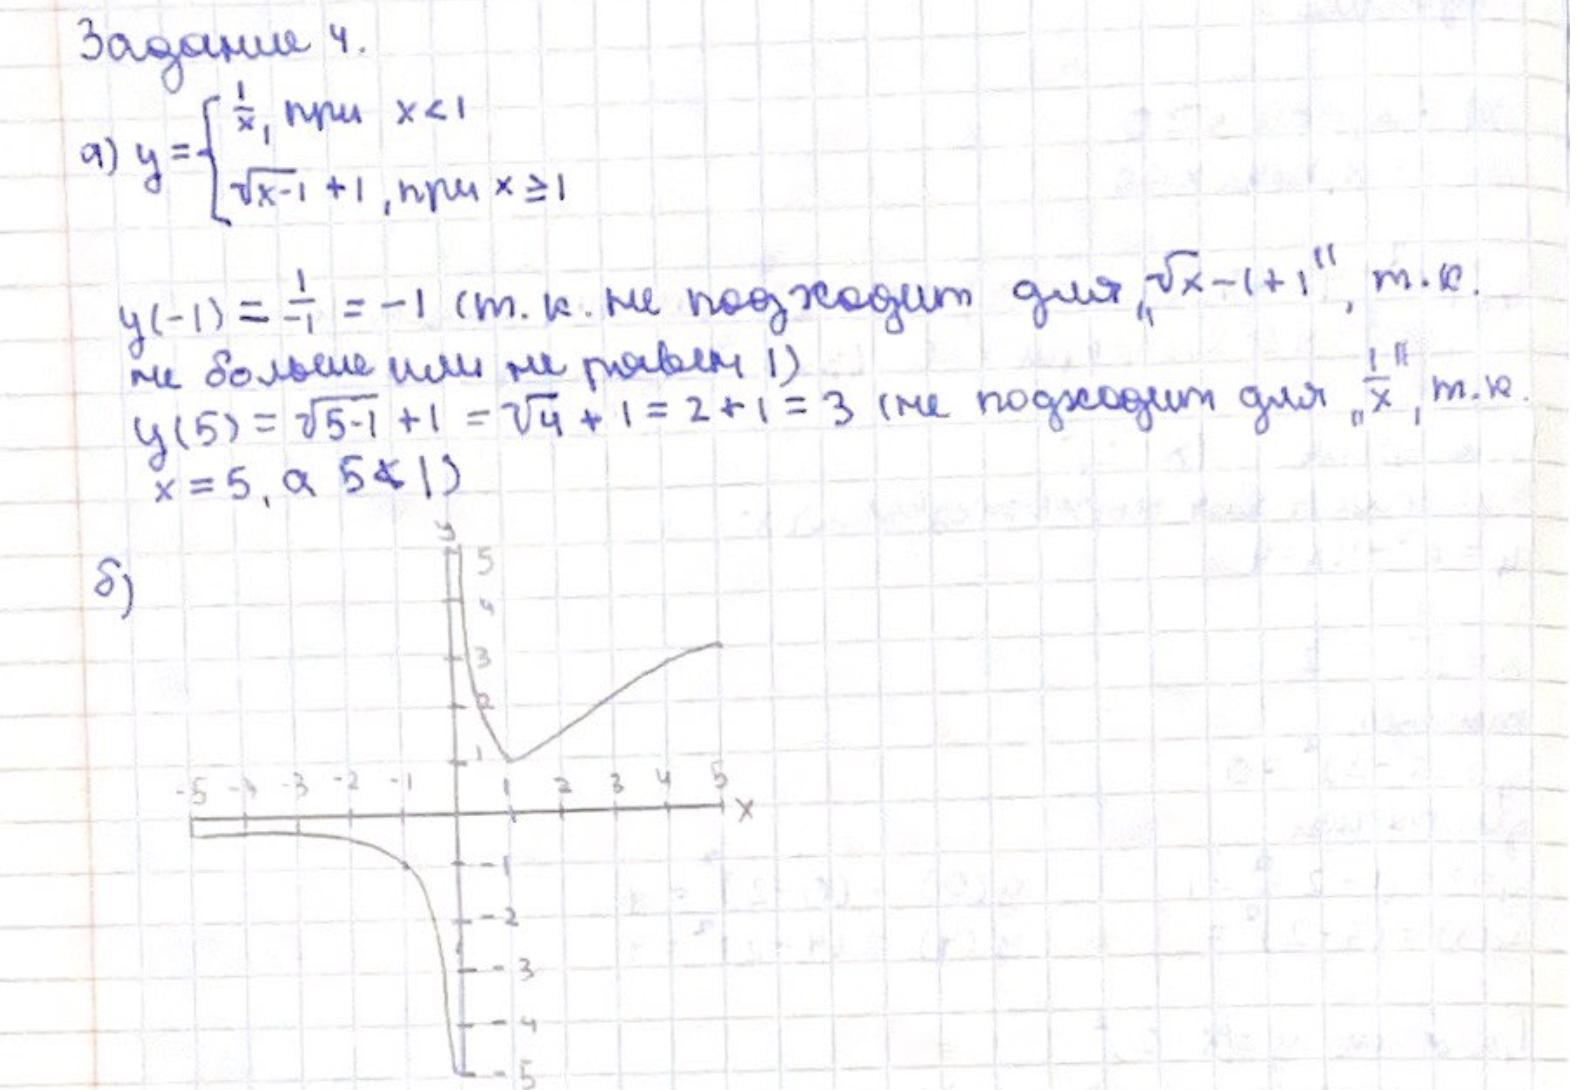 Задание 4.
а) y = { 1/x, при x < 1
√(x-1) + 1, при x ≥ 1
y(-1) = 1/-1 = -1 (т.к. не подходит для „√x-1+1", т.к.
не больше или не равен 1)
y(5) = √(5-1) + 1 = √4 + 1 = 2 + 1 = 3 (не подходит для „1/x", т.к.
x = 5, а 5 ≮ 1)
б)
y
5
4
3
2
1
-5 -4 -3 -2 -1 1 2 3 4 5
x
-1
-2
-3
-4
-5